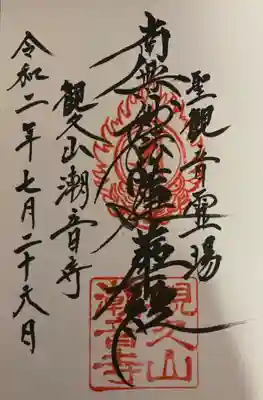 聖観音霊場
南無妙法蓮華経
観久山潮音寺
令和二年七月二十六日
観久山
潮音寺